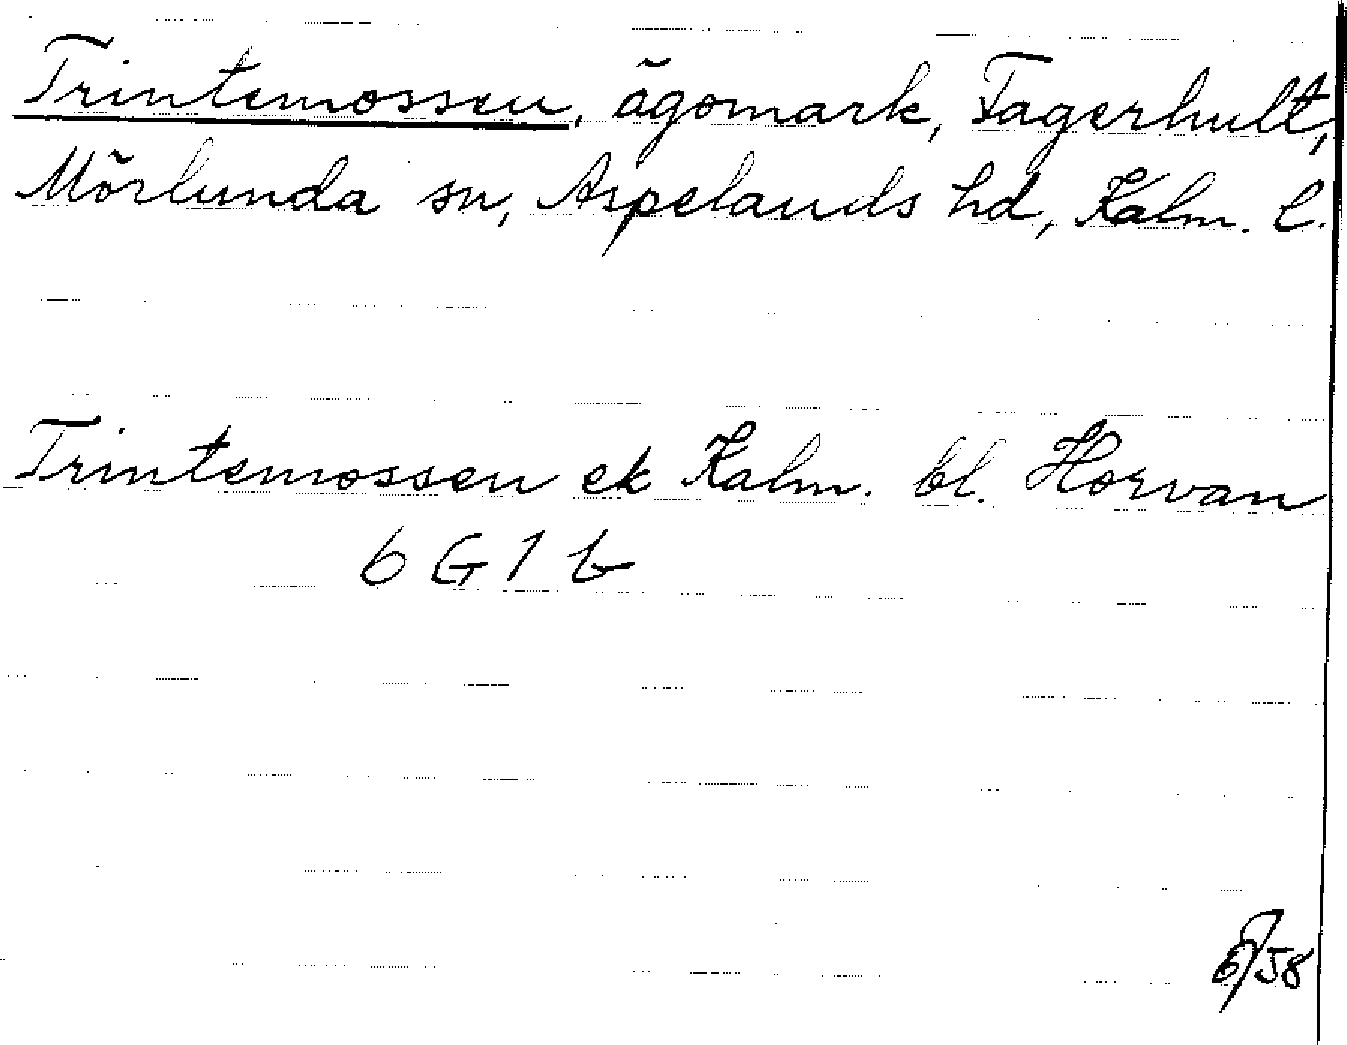 Trintemossen, ägomark, Fagerhult,
Mörlunda sn, Aspelands hd, Kalm. l.
Trintemossen ek Kalm. bl. Horvan
6 G 1 b